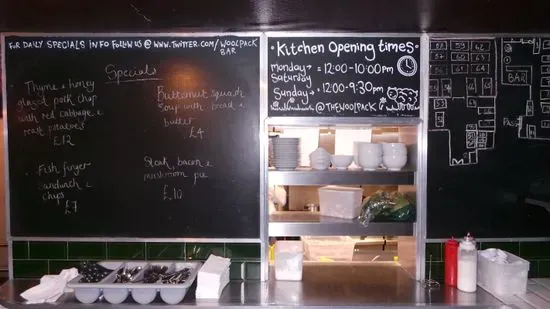 For DAILY SPECIALS INFO FOLLOW US @ WWW.TWITTER.COM/WOOLPACK
BAR
Specials
Thyme & honey
glazed pork chop
with red cabbage &
roast potatoes
£12
Butternut squash
soup with bread &
butter
£4
Fish finger
Sandwich &
chips
£7
Steak, bacon &
mushroom pie
£10
• Kitchen Opening times •
Monday →
Saturday = 12:00-10:00pm
Sunday → = 12:00-9:30pm
@THEWOOLPACK
BAR